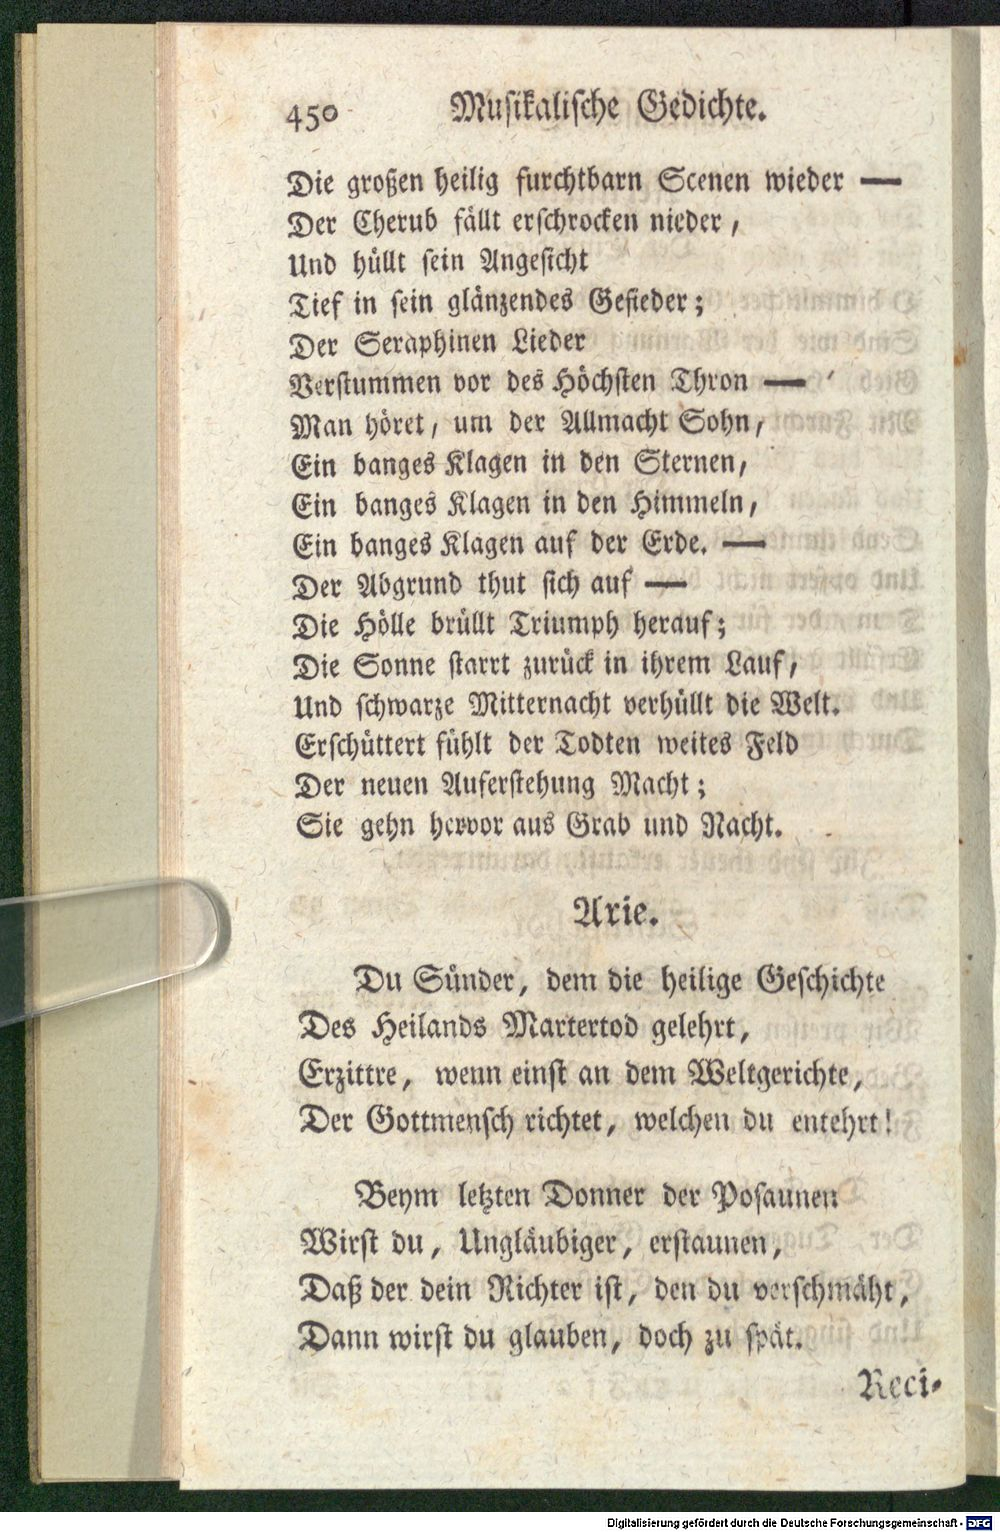 450 Musikalische Gedichte.
Die großen heilig furchtbarn Scenen wieder —
Der Cherub fällt erschrocken nieder,
Und hüllt sein Angesicht
Tief in sein glänzendes Gefieder;
Der Seraphinen Lieder
Verstummen vor des Höchsten Thron —
Man höret, um der Allmacht Sohn,
Ein banges Klagen in den Sternen,
Ein banges Klagen in den Himmeln,
Ein banges Klagen auf der Erde. —
Der Abgrund thut sich auf —
Die Hölle brüllt Triumph herauf;
Die Sonne starrt zurück in ihrem Lauf,
Und schwarze Mitternacht verhüllt die Welt.
Erschüttert fühlt der Todten weites Feld
Der neuen Auferstehung Macht;
Sie gehn hervor aus Grab und Nacht.
Arie.
Du Sünder, dem die heilige Geschichte
Des Heilands Martertod gelehrt,
Erzittre, wenn einst an dem Weltgerichte,
Der Gottmensch richtet, welchen du entehrt!
Beym letzten Donner der Posaunen
Wirst du, Ungläubiger, erstaunen,
Daß der dein Richter ist, den du verschmäht,
Dann wirst du glauben, doch zu spät.
Reci-
Digitalisierung gefördert durch die Deutsche Forschungsgemeinschaft - DFG